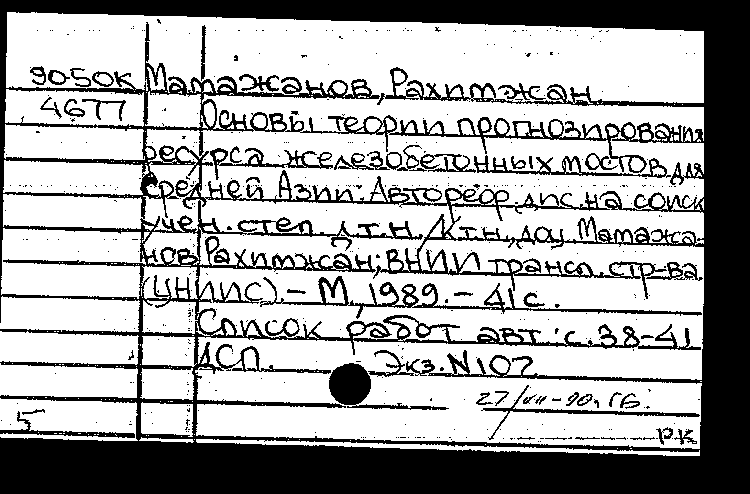 90-50К Мамажанов, Рахимжан.
4677 Основы теории прогнозирования
ресурса железобетонных мостов для
Средней Азии: Автореф. дис. на соиск.
учен. степ. д.т.н. / к.т.н., доц. Мамажа-
нов Рахимжан; ВНИИ трансп. стр-ва
(ЦНИИС). – М., 1989. – 41 с.
Список работ авт.: с. 38-41
ДСП. Экз. N 107
27/VII-90г. ГБ.
5 РК